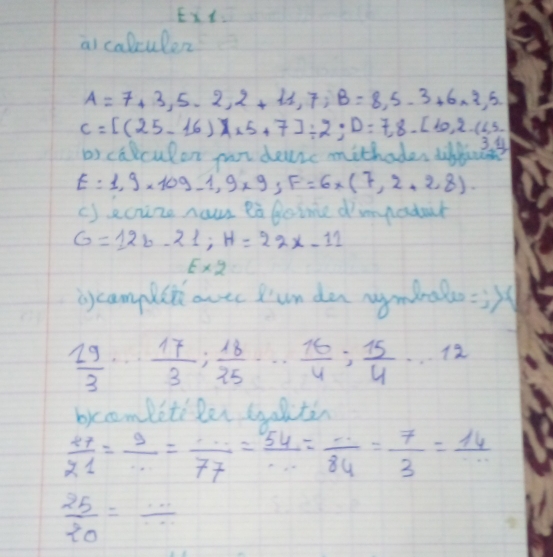 Ex 1.
a) calculer
A = 7 + 3,5 - 2,2 + 11,7 ; B = 8,5 - 3 + 6 × 2,5
C = [(25 - 16) × 5 + 7] ÷ 2 ; D = 7,8 - [10,2 - (6,9 - 3,9)
b) calculer par deux méthodes
E = 1,9 × 109 - 1,9 × 9 ; F = 6 × (7,2 + 2,8).
c) écrire sous la forme d'imporduit
G = 12b - 21 ; H = 22x - 11
Ex 2
a) complété avec l'un des symboles = ; > <
19/3 ... 17/3 ; 18/25 ... 16/4 ; 15/4 ... 12
b) comlété les égalités
27/21 = 9/... = .../77 = 54/... = .../84 = 7/3 = 14/...
25/20 = .../...